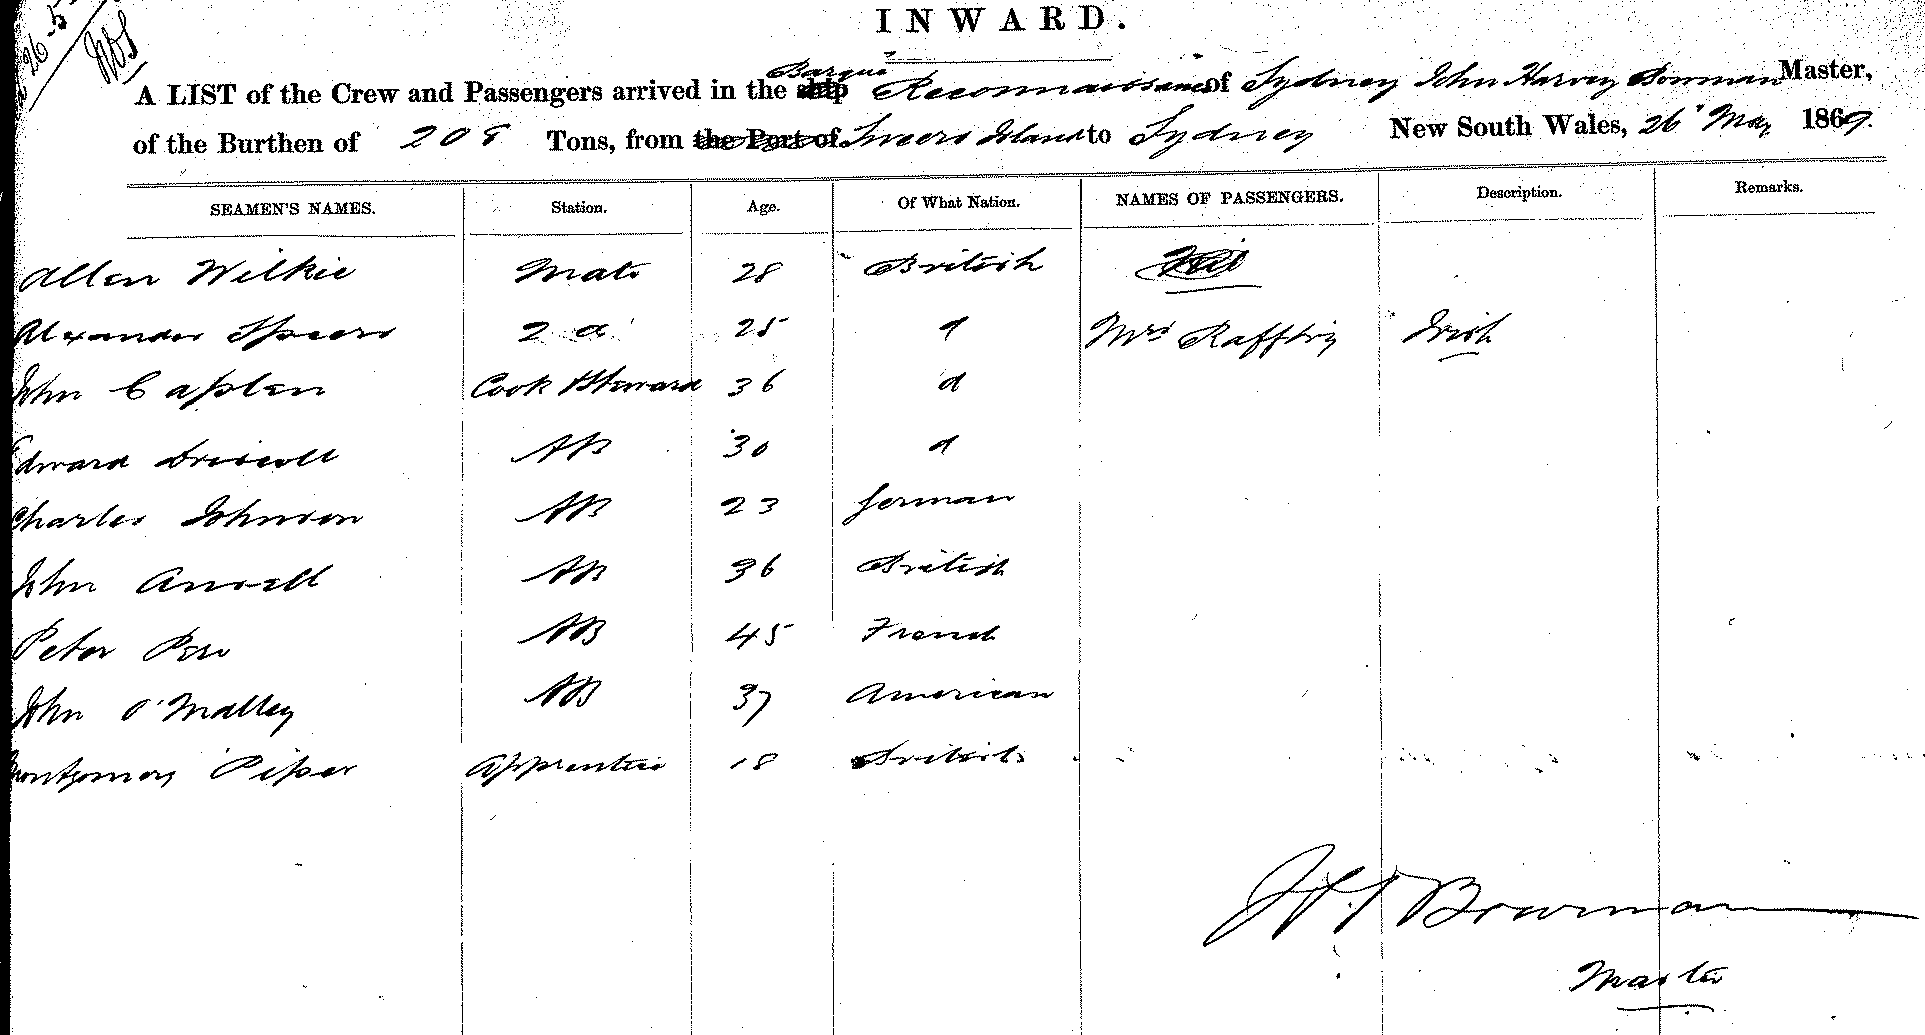 26-5-
INWARD.
A LIST of the Crew and Passengers arrived in the ship Barque Reconnaissance of Sydney John Harvey Bowman Master,
of the Burthen of 208 Tons, from the Port of Sweers Island to Sydney New South Wales, 26 May 1869.
SEAMEN'S NAMES. Station. Age. Of What Nation. NAMES OF PASSENGERS. Description. Remarks.
Allen Wilkie Mate 28 British
Alexander Speers 2d 25 d Mrs Rafftry Irish
John Caplen Cook & Steward 36 d
Edward Driscoll AB 30 d
Charles Johnson AB 23 German
John Ansell AB 36 British
Peter AB 45 French
John O'Malley AB 37 American
Montgomery Piper Apprentice 18 British
Bowman
Master